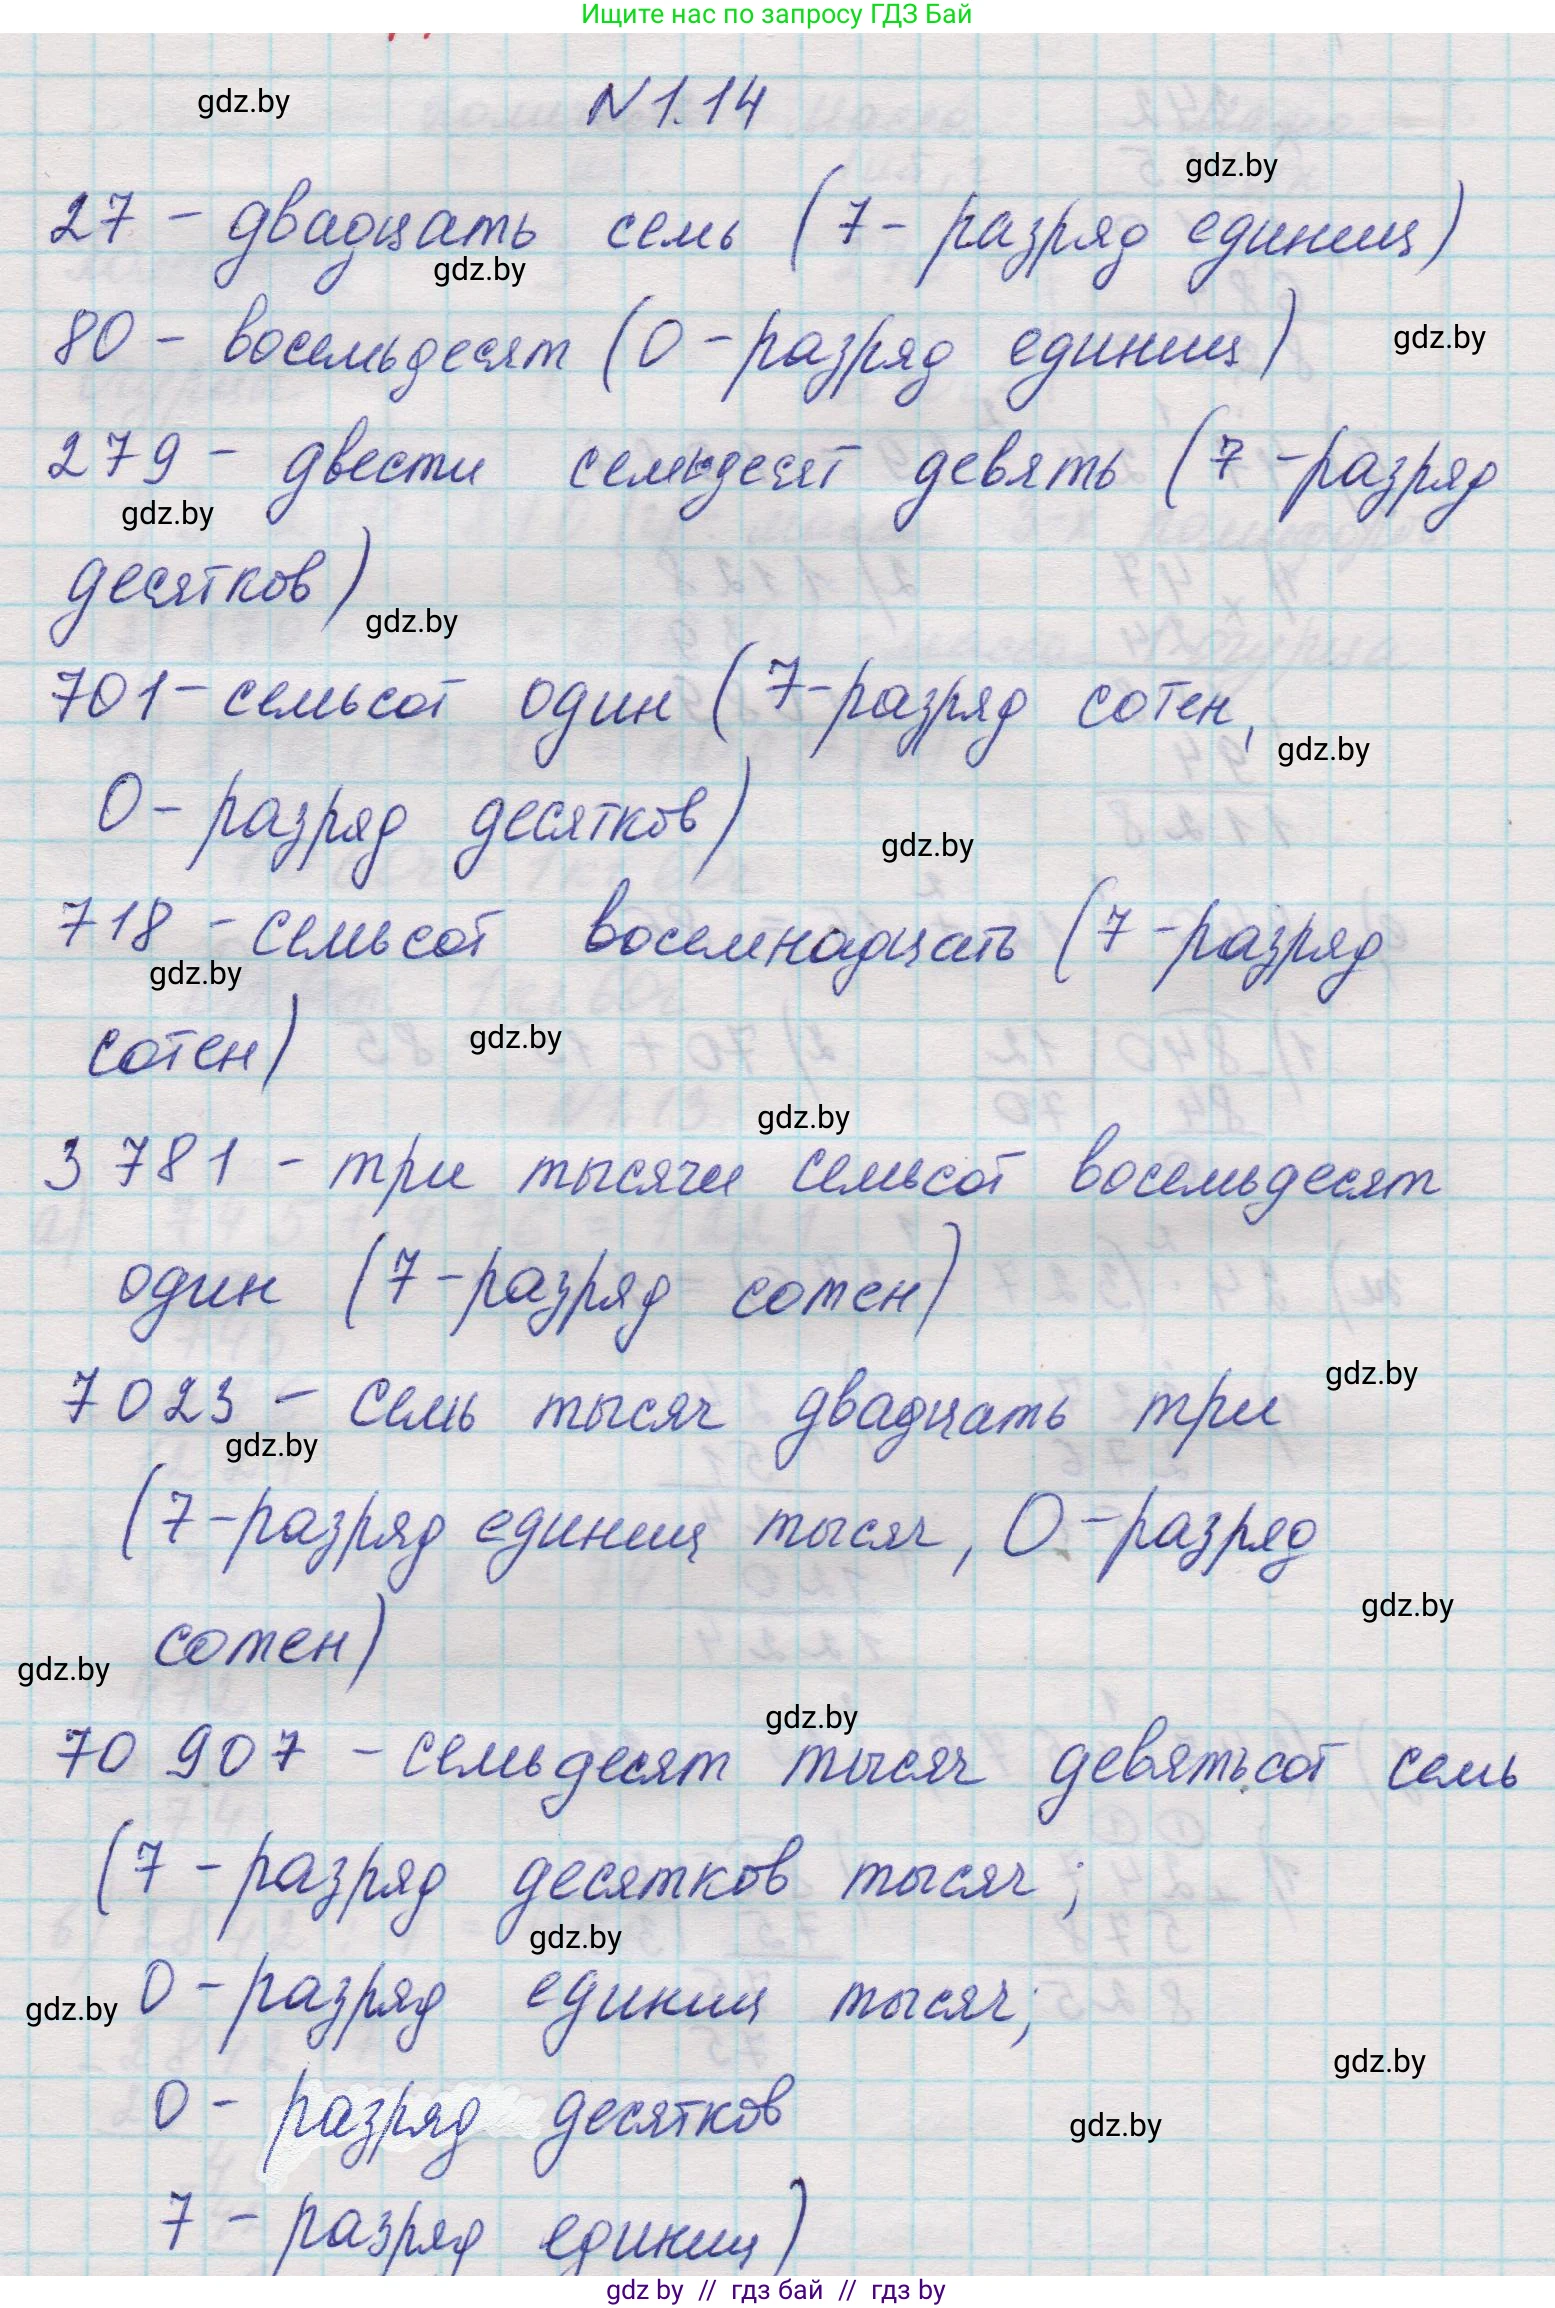 Ищите нас по запросу ГДЗ Бай
gdz.by
N 1.14
gdz.by
27 - двадцать семь (7 - разряд единиц)
gdz.by
80 - восемьдесят (0 - разряд единиц)
gdz.by
279 - двести семьдесят девять (7 - разряд
gdz.by
десятков)
gdz.by
701 - семьсот один (7 - разряд сотен,
gdz.by
0 - разряд десятков)
gdz.by
718 - семьсот восемнадцать (7 - разряд
gdz.by
сотен)
gdz.by
gdz.by
3 781 - три тысячи семьсот восемьдесят
один (7 - разряд сотен)
gdz.by
7 023 - семь тысяч двадцать три
gdz.by
(7 - разряд единиц тысяч, 0 - разряд
gdz.by
сотен)
gdz.by
gdz.by
70 907 - семьдесят тысяч девятьсот семь
(7 - разряд десятков тысяч;
gdz.by
0 - разряд единиц тысяч;
gdz.by
gdz.by
0 - разряд десятков
gdz.by
7 - разряд единиц)
gdz by // гдз бай // гдз by